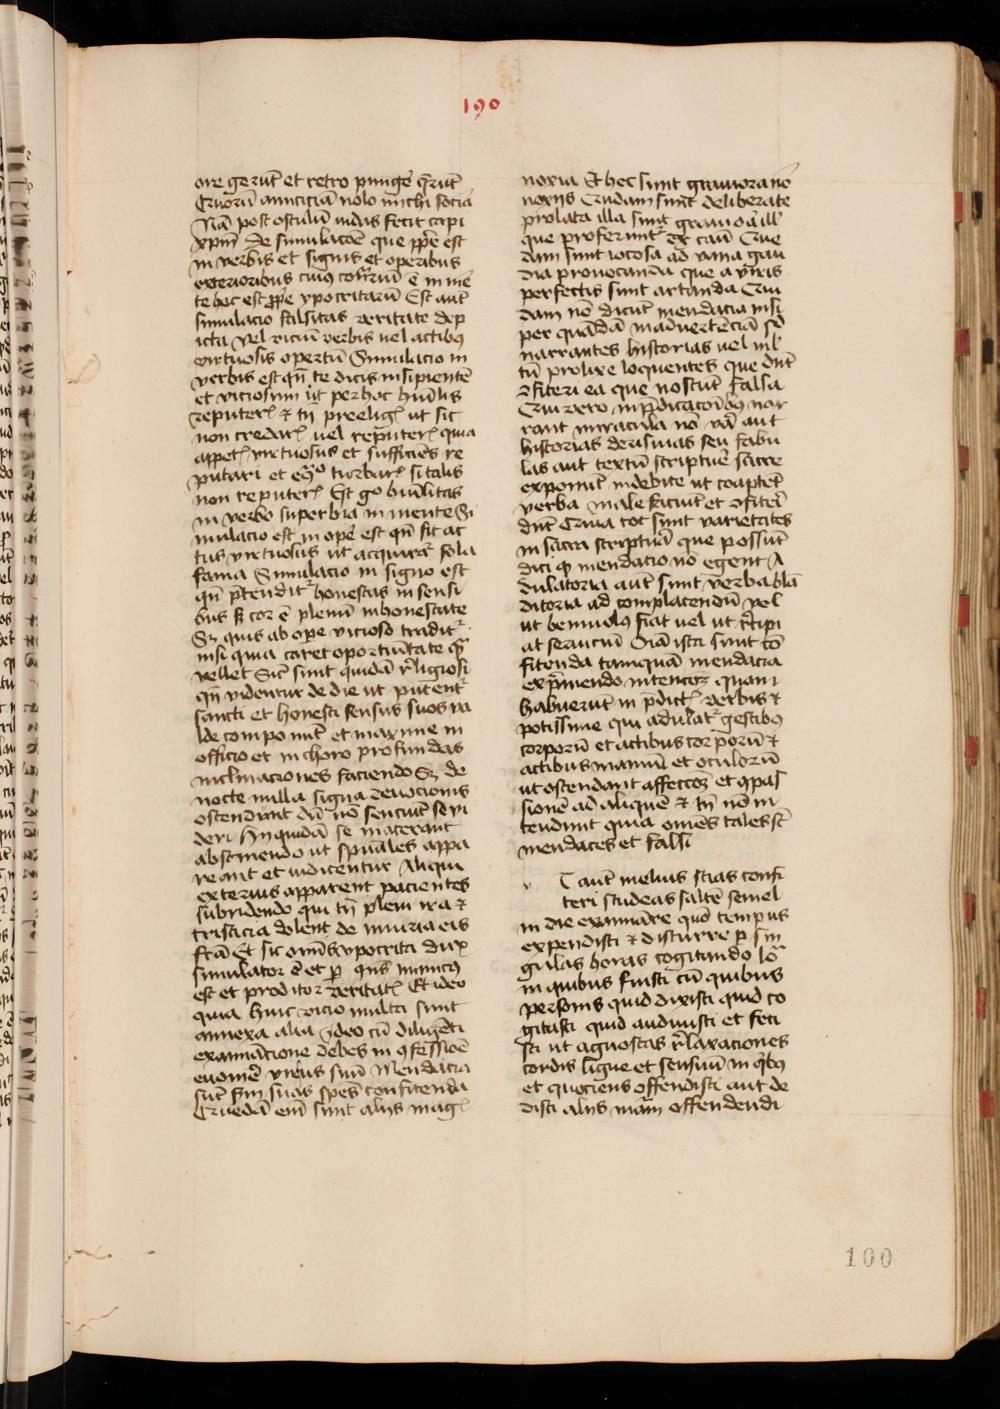 190
ore gerūt et retro pungē q̄rūt
Quorū amicitiā nolo michi socia
Nā post osculū iudas fecit capi
xpm̄ De simulacōe que p̄pe est
in verbis et signis et operibus
exterioribus cuius cōtrariū ē in mē
te hoc est p̄pe ypocritarū Est aut̄
simulacio falsitas veritate dep
icta vel viciū verbis uel actibꝰ
virtuosis opertū Simulacio in
verbis est qn̄ te dicis insipientē
et viciosum ut per hoc hūilis
reputeris et tn̄ preeligis ut sic
non credaris uel reputeris quia
appetis virtuosus et sufficiēs re
putari et ego turbaris si talis
non reputeris Est go hūilitas
in verbo superbia in mente Si
mulacio est in ope est qn̄ fit ac
tus virtuosus ut acquirat̄ sola
fama Simulacio in signo est
qn̄ p̄tendit̄ honestas in sensi
bus s̄ cor ē plenū inhonestate
Sꝫ quis ab ope vicioso tradit̄
nisi quia caret oportūitate q̄
vellet Sic̄ sunt quidā religiosi
qn̄ videntur de die ut putent̄
sancti et honesti sensus suos va
lde componūt et maxime in
officio et in choro profundas
inclinaciones faciendo Sꝫ de
nocte nulla signa deuocionis
ostendunt dū nō senciūt se vi
deri Hinc quidā se macerant
abstinendo ut sp̄uales appa
reant et iudicentur Aliqui
exterius apparent pacientes
subridendo qui tn̄ pleni ira et
tristicia dolent de iniuria eis
fctā Et sic omīs ypocrita dux
simulator ē et p̄ qn̄s inimicꝰ
est et proditor veritatis Et ideo
quia huic vicio multa sunt
annexa alia ideo cū diligēti
examinatione debes in ꝯfessiōe
euomē virus suū Mendacia
sūt scdm suas spēs confitenda
Quedā em̄ sunt aliis magis
noxia Et hec sunt grauiora nō
noxiis Quedam sunt deliberate
prolata illa sunt grauiora ill
que proferunt̄ ex cau Que
dam sunt iocosa ad vana gau
dia prouocanda que a viris
perfectis sunt artanda Qui
dam nō dicūt mendacia nisi
per quādā inaduertēciā sed
narrantes historias uel ml̄
tū prolixe loquentes que dnt̄
ꝯfiteri ea que noscūt falsa
Qui vero in p̄dicacōibꝰ nar
rant miracula nō vā aut
historias derisiuas seu fabu
las aut textū scripture sacre
exponūt indebite ut coaptēt
verba male faciūt et ꝯfiteri
dn̄t Quia tot sunt varietates
in sacra scriptura que possūt
dici qꝫ mendacio nō egent A
dulatoria aut̄ sunt verba blā
ditoria ad complacendū vel
ut beniuolꝰ fiat uel ut recipi
at seruiciū Oīa ista sunt cō
fitenda tamquā mendacia
exp̄mendo intencōꝫ quam
habuerūt in p̄dictis verbis et
potissime qui adulat̄ gestibꝰ
corporū et actibus corporū et
actibus manuū et oculorū
ut ostendant affectōꝫ et ꝯpas
sionē ad aliquē et tn̄ nō in
tendunt quia omēs tales st̄
mendaces et falsi
v T aut̄ melius scias confi
teri studeas saltē semel
in die examinare quō tempus
expendisti et discurre p sin
gulas horas cogitando lō
in quibus fuisti cū quibus
personis quid dixisti quid co
gitasti quid audiuisti et feci
sti ut agnoscas relaxaciones
cordis ligue et sensuū in qͥbꝰ
et quociens offendisti aut de
disti aliis mām offendendi
100